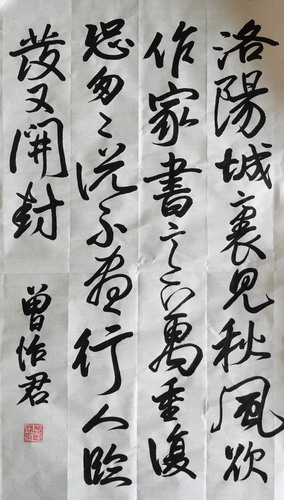 洛陽城裏見秋風欲
作家書意萬重復
恐匆〻說不盡行人臨
發又開封
曾怡君